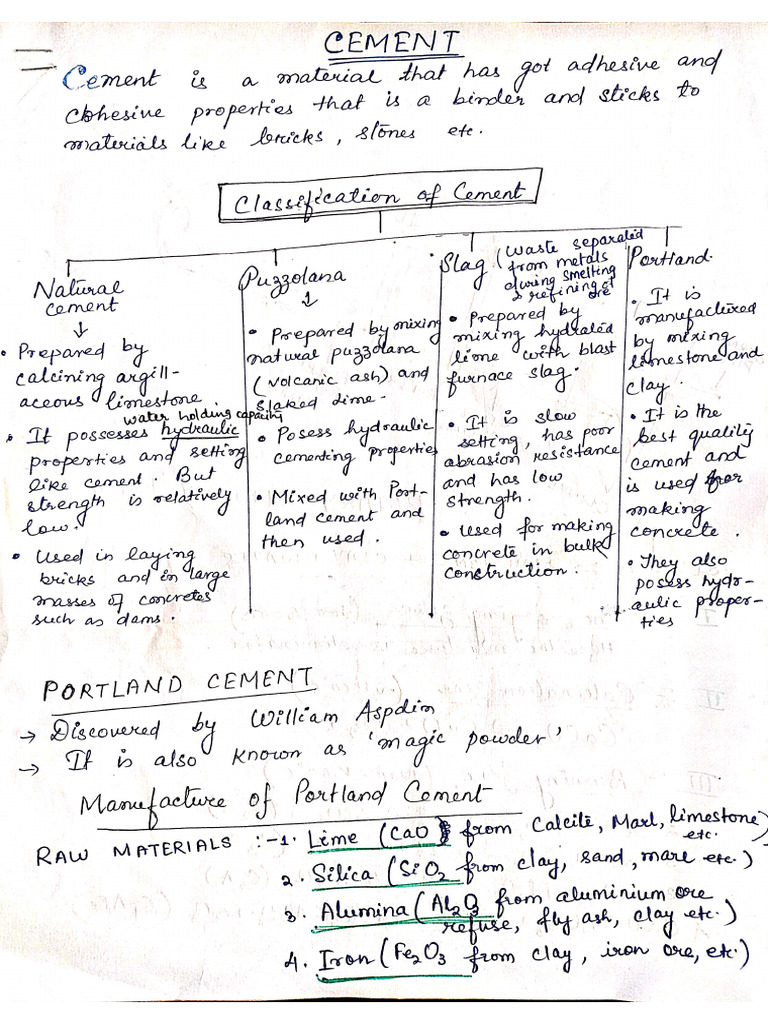 CEMENT
Cement is a material that has got adhesive and
cohesive properties that is a binder and sticks to
materials like bricks, stones etc.
Classification of Cement
Natural
cement
• Prepared by
calcining argill-
aceous limestone.
water holding capacity
• It possesses hydraulic
properties and setting
like cement. But
strength is relatively
low.
• Used in laying
bricks and in large
masses of concretes
such as dams.
Puzzolana
• Prepared by mixing
natural puzzolana
(volcanic ash) and
slaked lime.
• Posess hydraulic
cementing properties
• Mixed with Port-
land cement and
then used.
Slag (Waste separated
from metals
during smelting
& refining of
ore
• Prepared by
mixing hydrated
lime with blast
furnace slag.
• It is slow
setting, has poor
abrasion resistance
and has low
strength.
• Used for making
concrete in bulk
construction.
Portland.
• It is
manufactured
by mixing
limestone and
clay.
• It is the
best quality
cement and
is used for
making
concrete.
• They also
posess hydr-
aulic proper-
ties
PORTLAND CEMENT
→ Discovered by William Aspdin
→ It is also known as 'magic powder'
Manufacture of Portland Cement
RAW MATERIALS :-1. Lime (CaO) from Calcite, Marl, limestone)
etc.
2. Silica (SiO2 from clay, sand, mare etc.)
3. Alumina (Al2O3 from aluminium ore
refuse, fly ash, clay etc.)
4. Iron (Fe2O3 from clay, iron ore, etc.)